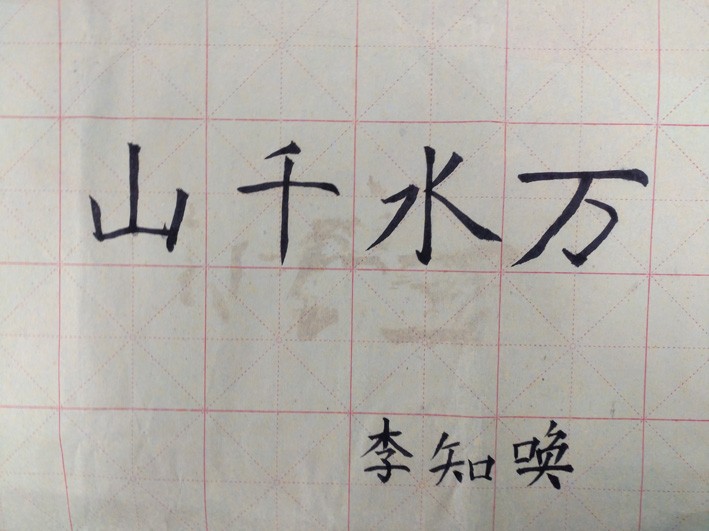 山千水万
李知唤